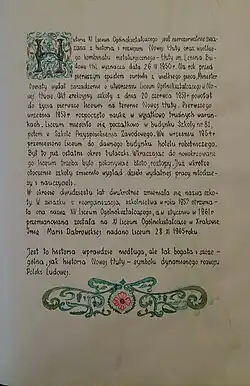 Historia XI Liceum Ogólnokształcącego jest nierozerwalnie zwią-
zana z historią i rozwojem Nowej Huty oraz wielkie-
go kombinatu metalurgicznego - Huty im. Lenina. Bu-
dowa HiL wyznacza data 26 IV 1950 r. Na rok przed
pierwszym spustem surówki z wielkiego pieca, Minister
Oświaty wydał zarządzenie o utworzeniu Liceum Ogólnokształcącego w No-
wej Hucie. Akt erekcyjny szkoły z dnia 20 czerwca 1953 r powołał
do życia pierwsze liceum na terenie Nowej Huty. Pierwszego
września 1953 r rozpoczęto naukę w wyjątkowo trudnych warun-
kach. Liceum mieściło się początkowo w budynku Szkoły nr 81,
potem w Szkole Przysposobienia Zawodowego. We wrześniu 1954 r
przeniesiono liceum do dawnego budynku hotelu robotniczego.
Był to już ostatni okres tułaczki. Wkraczając do nowotworzone-
go liceum trzeba było pokonywać błoto rozłogu. Już wkrótce
otoczenie szkoły zmieniło wygląd dzięki wydatnej pracy młodzie-
ży i nauczycieli.
W okresie dwudziestu lat dwukrotnie zmieniała się nazwa szko-
ły. W związku z reorganizacją szkolnictwa w roku 1957 otrzyma-
ła ona nazwę XII Liceum Ogólnokształcącego, a w styczniu w 1961 r
przemianowana została na XI Liceum Ogólnokształcące w Krakowie.
Imię Marii Dąbrowskiej nadano liceum 28 XI 1965 roku.
Jest to historia wprawdzie niedługa, ale tak bogata i szcze-
gólna, jak historia Nowej Huty - symbolu dynamicznego rozwoju
Polski Ludowej.